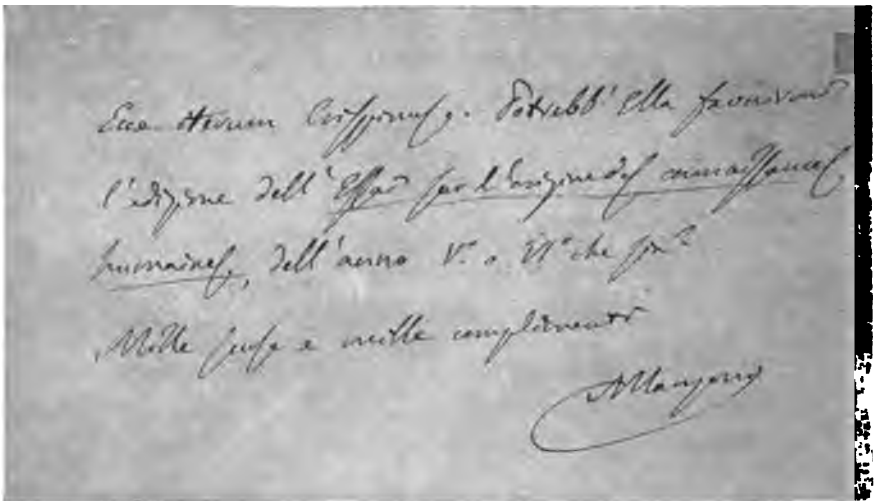 Ecce iterum Crispinus. Potrebb'Ella favorirmi
l'edizione dell'Essai sur l'origine des connaissances
humaines, dell'anno V.° o VI° che sia?
Mille scuse e mille complimenti
AManzoni